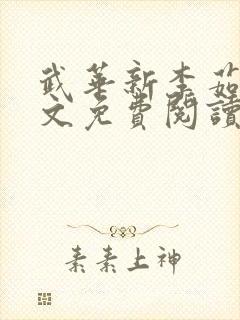 武華新李茹
文免費閱讀
素素上神